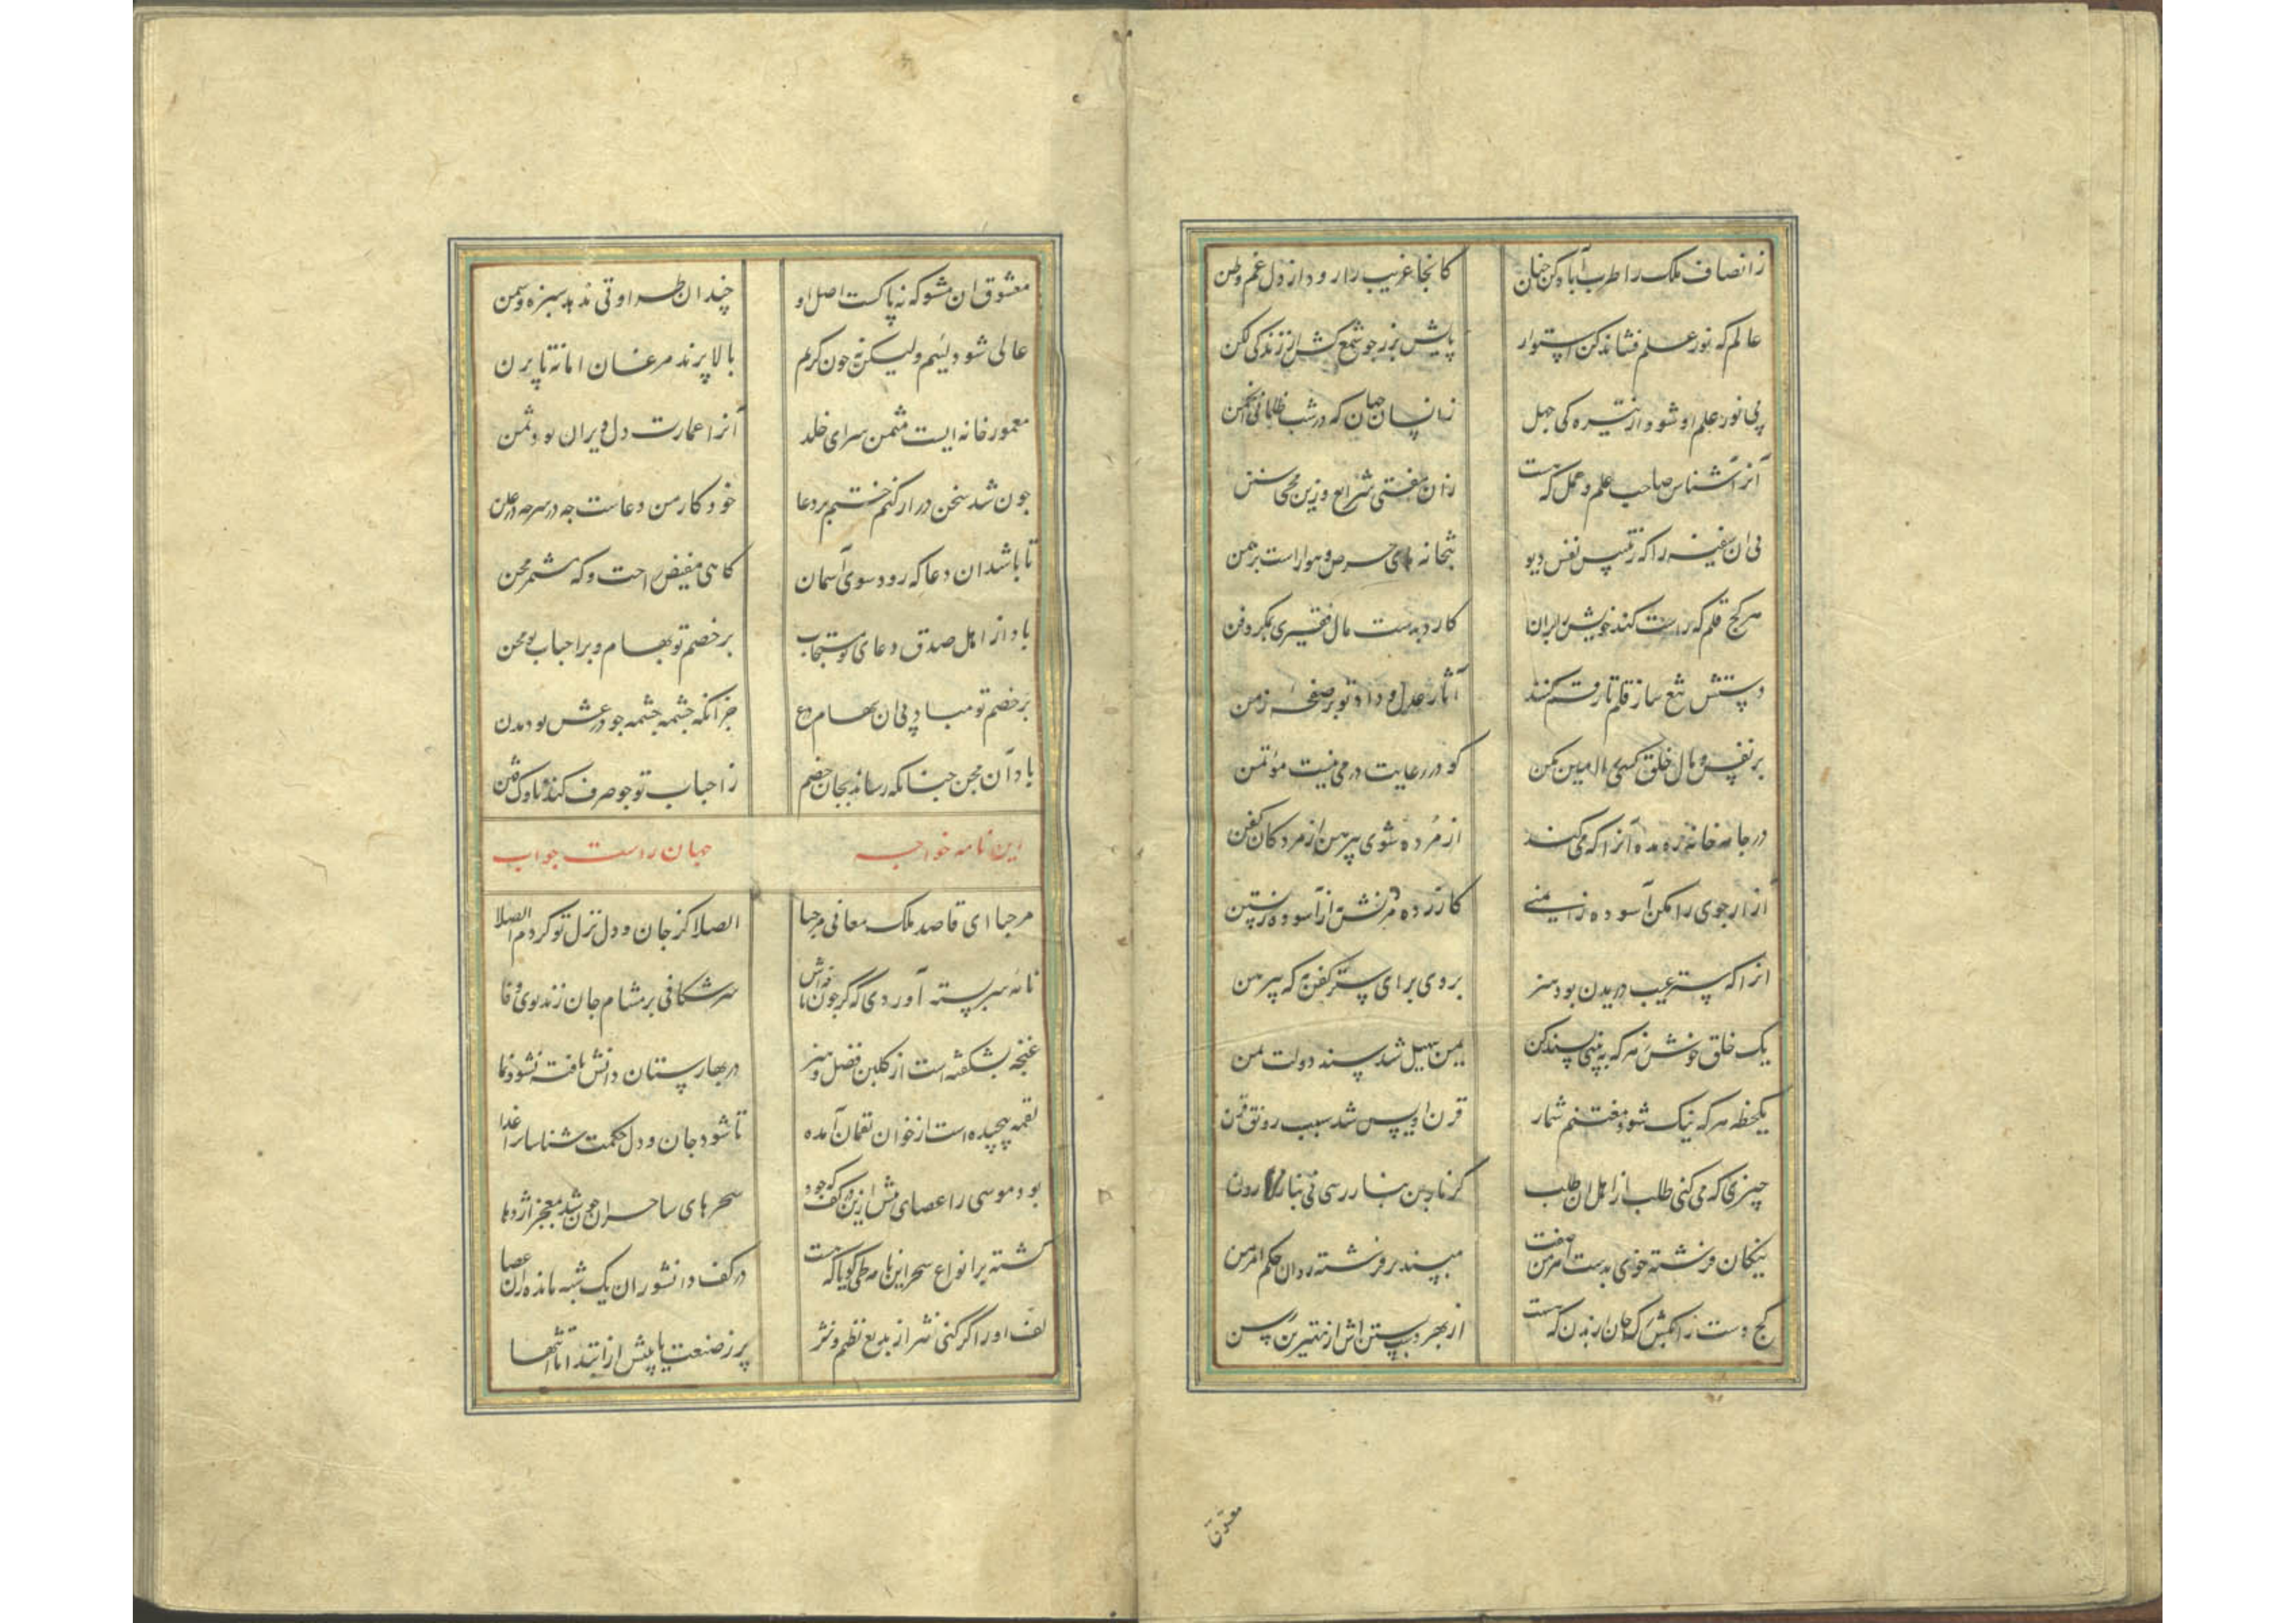 زانصاف ملک را طرب آباد کن چنان
کانجا غریب را رود از دل غم وطن
عالم که نور علم فشاند کن استوار
پایش بزر چو شمع کش از زندگی لکن
پی نور علم او شود از تیره کی جهل
زانسان جهان که در شب ظلمانی انجمن
آنرا شناس صاحب علم و عمل که هست
زان مفتی شرایع وزین محیی سنن
نی ان سفیه را که ز تلبیس نفس دیو
بتخانه های حرص و هوا راست برهمن
هر کج قلم که راست کند خویش را بران
کارد بدست مال فقیری بمکر و فن
دستش بتیغ ساز قلم تا رقم کنند
آثار عدل و داد تو بر صفحه زمن
بر نفس و مال خلق کسی را امین مکن
کو در رعایت درمی نیست موتمن
در جامه خانه ره مده آنرا که می کند
از مرده شوی پیرهن از مردکان کفن
آزارجوی را مکن آسوده زایمنی
کازرده مردنش از آسوده زیستن
انرا که ستر عیب دریدن بود هنر
بروی برای ستر کفن به که پیرهن
یک خلق خوش ز هر که به بینی پسند کن
یمن سهیل شد سپند دولت یمن
یکحظه هر که نیک شود مغتنم شمار
قرن اویس شد سبب رونق قرن
چیزی که می کنی طلب از اهل ان طلب
نیکان فرشته خوی بدست اهرمن صفت
مپسند بر فرشته روان حکم اهرمن
کج دست را مکش که جهان ار بدن که هست
از بهر دست بستن اش از بهترین رسن
معشوق
معشوق ان مشو که نه پاکست اصل او
چندان طراوتی ندهد سبزه و سمن
عالی شود لئیم ولیکن نه چون کریم
بالا پرند مرغان اما نه تا پرن
معمور خانه ایست مثمن سرای خلد
آنرا عمارت دل ویران بود ثمن
چون شد سخن دراز کنم ختم بر دعا
خود کار من دعاست چه در سر چه در علن
تا باشد ان دعا که رود سوی آسمان
کاهی مفیض راحت و که مثمر محن
باد از اهل صدق دعای تو مستجاب
بر خصم تو بهام و بر احباب تو محن
بر خصم تو مباد پی ان بهام درع
جز انکه چشمه چشمه چو درعش بود بدن
باد آن محن چنانکه رساند بجان خصم
ز احباب تو چو صرف کند ناوک فتن
این نامه خواجه جهان راست جواب
مرحبا ای قاصد ملک معانی مرحبا
الصلا کز جان و دل نزل تو کردم الصلا
نامه سربسته آوردی که کر چون نافه اش
سر شکافی بر مشام جان زند بوی وفا
غنچه بشکفته است از کلبن فضل و هنر
در بهارستان دانش یافته نشو و نما
لقمه پیچیده است از خوان لقمان آمده
تا شود جان و دل حکمت شناسان را غذا
بود موسی را عصای پیش ازین در کف که خود
سحرهای ساحران چون شد معجز اژدها
کشته پر انواع سحر این نامه مطوی کویا که هست
در کف دانشوران یک شبه مانده زان عصا
لف او را کر کنی نشر از بدیع نظم و نثر
پر ز صنعت یابیش از ابتدا تا انتها